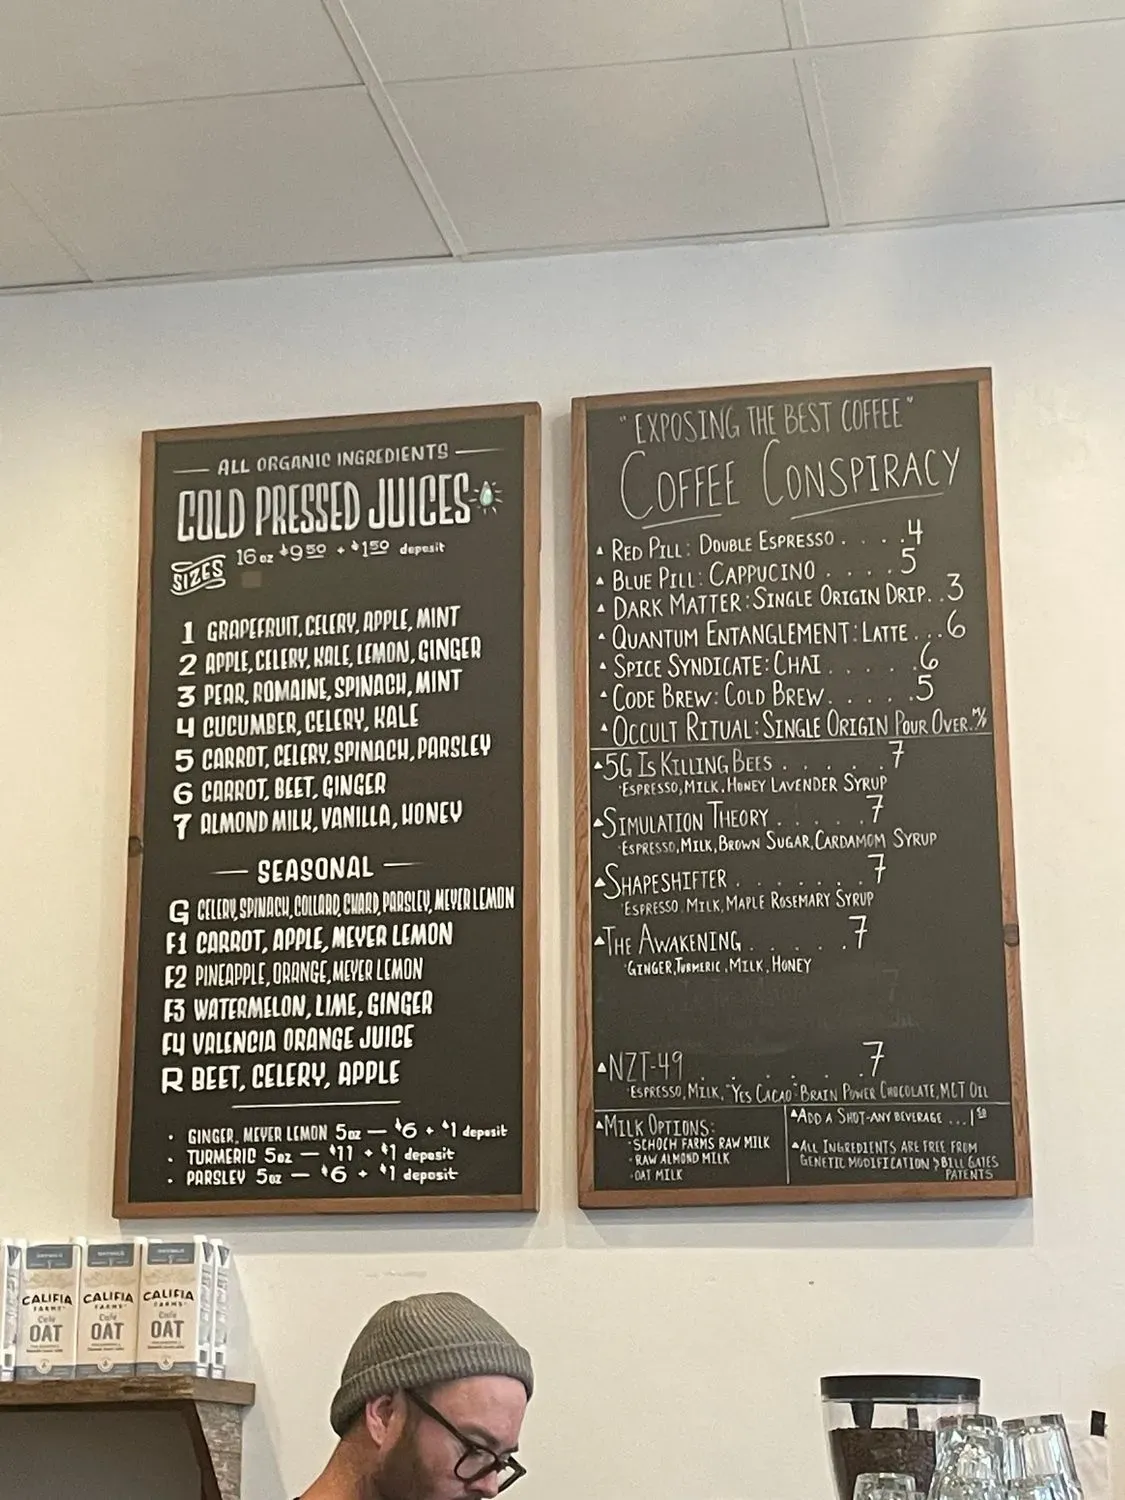 ALL ORGANIC INGREDIENTS
COLD PRESSED JUICES
SIZES 16 oz $9 50 + $1 50 deposit
1 GRAPEFRUIT, CELERY, APPLE, MINT
2 APPLE, CELERY, KALE, LEMON, GINGER
3 PEAR, ROMAINE, SPINACH, MINT
4 CUCUMBER, CELERY, KALE
5 CARROT, CELERY, SPINACH, PARSLEY
6 CARROT, BEET, GINGER
7 ALMOND MILK, VANILLA, HONEY
SEASONAL
G CELERY, SPINACH, COLLARD, CHARD, PARSLEY, MEYER LEMON
F1 CARROT, APPLE, MEYER LEMON
F2 PINEAPPLE, ORANGE, MEYER LEMON
F3 WATERMELON, LIME, GINGER
F4 VALENCIA ORANGE JUICE
R BEET, CELERY, APPLE
· GINGER, MEYER LEMON 5oz — $6 + $1 deposit
· TURMERIC 5oz — $11 + $1 deposit
· PARSLEY 5oz — $6 + $1 deposit
"EXPOSING THE BEST COFFEE"
COFFEE CONSPIRACY
RED PILL: DOUBLE ESPRESSO . . . . 4
BLUE PILL: CAPPUCINO . . . . 5
DARK MATTER: SINGLE ORIGIN DRIP. . 3
QUANTUM ENTANGLEMENT: LATTE . . . 6
SPICE SYNDICATE: CHAI . . . . . 6
CODE BREW: COLD BREW. . . . . 5
OCCULT RITUAL: SINGLE ORIGIN POUR OVER.. M/P
5G IS KILLING BEES . . . . . 7
·ESPRESSO, MILK, HONEY LAVENDER SYRUP
SIMULATION THEORY . . . . . 7
·ESPRESSO, MILK, BROWN SUGAR, CARDAMOM SYRUP
SHAPESHIFTER . . . . . . . 7
·ESPRESSO. MILK, MAPLE ROSEMARY SYRUP
THE AWAKENING . . . . . 7
·GINGER, TURMERIC, MILK, HONEY
NZT-49 . . . . . . . 7
·ESPRESSO, MILK, "YES CACAO" BRAIN POWER CHOCOLATE, MCT OIL
MILK OPTIONS:
·SCHOCH FARMS RAW MILK
·RAW ALMOND MILK
·OAT MILK
ADD A SHOT-ANY BEVERAGE ...1 50
ALL INGREDIENTS ARE FREE FROM
GENETIC MODIFICATION & BILL GATES
PATENTS
CALIFIA
FARMS
Café
OAT
CALIFIA
FARMS
Café
OAT
CALIFIA
FARMS
Café
OAT